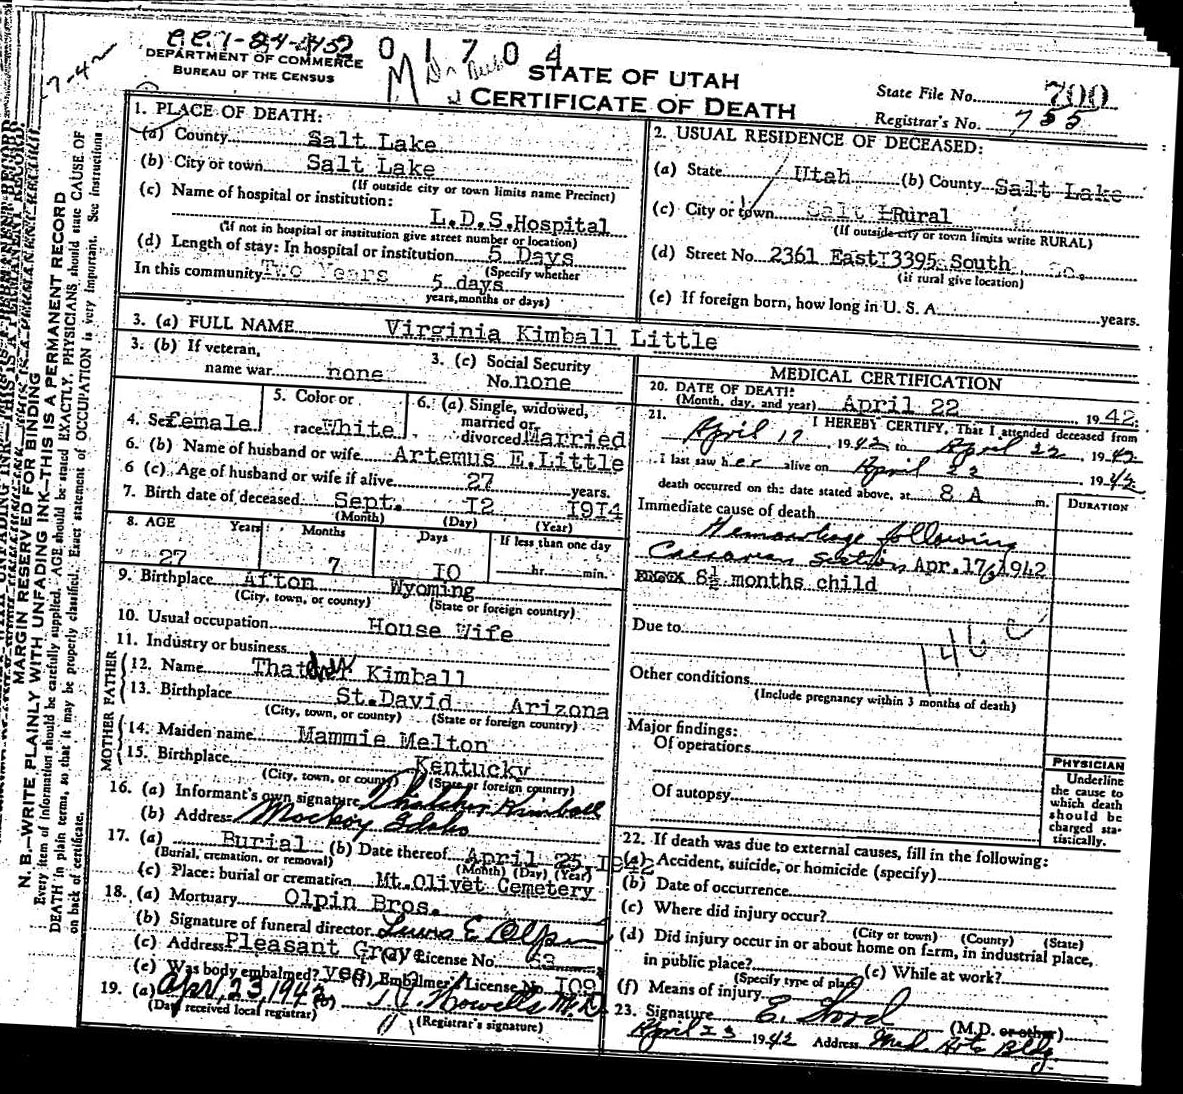 C.C. 1-84-452 01704
DEPARTMENT OF COMMERCE
BUREAU OF THE CENSUS
7-42
STATE OF UTAH
CERTIFICATE OF DEATH
State File No. 700
Registrar's No. 755
1. PLACE OF DEATH:
(a) County Salt Lake
(b) City or town Salt Lake
(If outside city or town limits name Precinct)
(c) Name of hospital or institution:
L.D.S.Hospital
(If not in hospital or institution give street number or location)
(d) Length of stay: In hospital or institution 5 Days
(Specify whether
In this community Two Years 5 days
years, months or days)
2. USUAL RESIDENCE OF DECEASED:
(a) State Utah (b) County Salt Lake
(c) City or town Salt L Rural
(If outside city or town limits write RURAL)
(d) Street No. 2361 East 3395 South So.
(if rural give location)
(e) If foreign born, how long in U. S. A. years.
3. (a) FULL NAME Virginia Kimball Little
3. (b) If veteran, name war none
3. (c) Social Security No. none
4. Sex female
5. Color or race White
6. (a) Single, widowed, married or divorced Married
6. (b) Name of husband or wife Artemus E.Little
6 (c). Age of husband or wife if alive 27 years.
7. Birth date of deceased Sept. 12 1914
(Month) (Day) (Year)
8. AGE Years Months Days If less than one day
27 7 10 hr. min.
9. Birthplace Afton Wyoming
(City, town, or county) (State or foreign country)
10. Usual occupation House Wife
11. Industry or business
FATHER
12. Name Thatcher Kimball
13. Birthplace St.David Arizona
(City, town, or county) (State or foreign country)
MOTHER
14. Maiden name Mammie Melton
15. Birthplace Kentucky
(City, town, or county) (State or foreign country)
16. (a) Informant's own signature Thatcher Kimball
(b) Address Mackay Idaho
17. (a) Burial (b) Date thereof April 25 1942
(Burial, cremation, or removal) (Month) (Day) (Year)
(c) Place: burial or cremation Mt.Olivet Cemetery
18. (a) Mortuary Olpin Bros.
(b) Signature of funeral director Lewis E Olpin
(c) Address Pleasant Grove License No. 53
(e) Was body embalmed? yes (f) Embalmer's License No. 109
19. (a) Apr, 23, 1942 (b) Howells M.D.
(Date received local registrar) (Registrar's signature)
MEDICAL CERTIFICATION
20. DATE OF DEATH:
(Month, day, and year) April 22 1942
21. I HEREBY CERTIFY, That I attended deceased from
April 17 1942 to April 22, 1942
I last saw her alive on April 22 1942
death occurred on the date stated above, at 8 A m.
DURATION
Immediate cause of death
Hemorrhage following
Caesarean Section Apr.17/1942
8½ months child
Due to
146 c
Other conditions
(Include pregnancy within 3 months of death)
Major findings:
Of operations
Of autopsy
PHYSICIAN
Underline
the cause to
which death
should be
charged sta-
tistically.
22. If death was due to external causes, fill in the following:
(a) Accident, suicide, or homicide (specify)
(b) Date of occurrence
(c) Where did injury occur?
(City or town) (County) (State)
(d) Did injury occur in or about home on farm, in industrial place,
in public place? (e) While at work?
(Specify type of place)
(f) Means of injury
23. Signature (M.D. or other)
April 23 1942 Address Med Arts Bldg.
MARGIN RESERVED FOR BINDING
N. B.—WRITE PLAINLY WITH UNFADING INK—THIS IS A PERMANENT RECORD
Every item of information should be carefully supplied. AGE should be stated EXACTLY. PHYSICIANS should state CAUSE OF
DEATH in plain terms, so that it may be properly classified. Exact statement of OCCUPATION is very important. See instructions
on back of certificate.